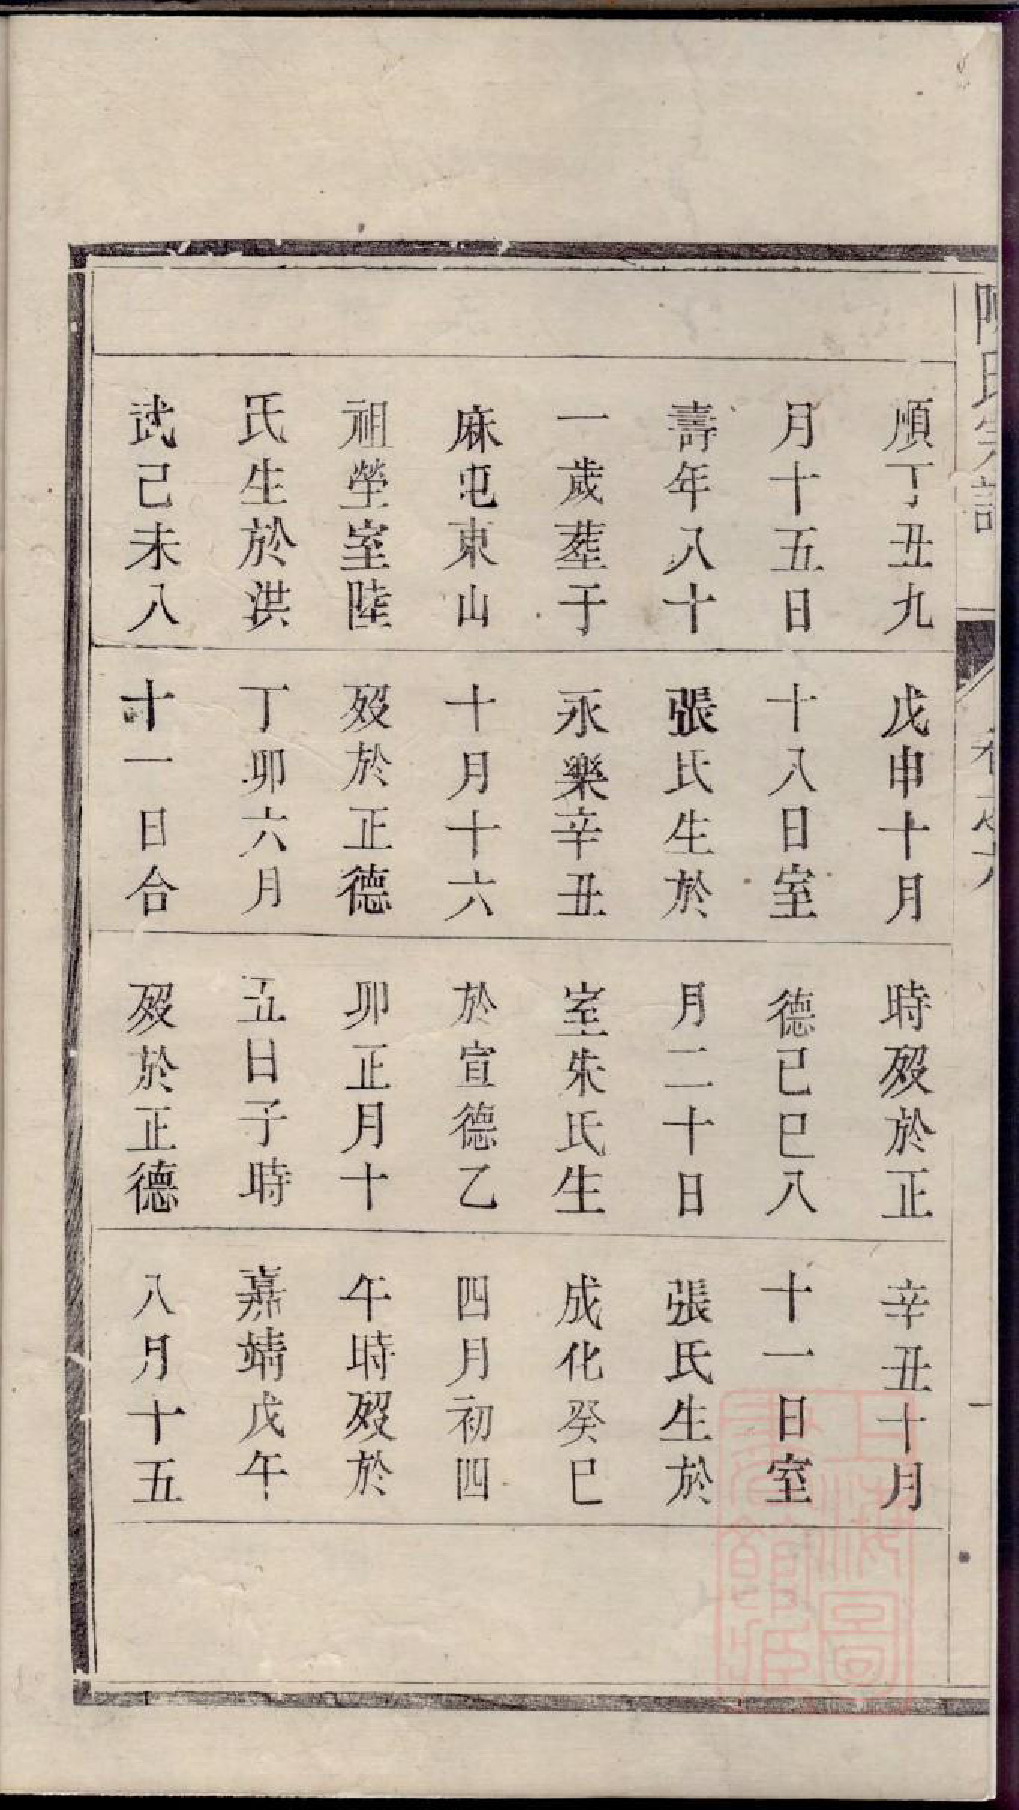 順丁丑九
月十五日
壽年八十
一歲葬于
麻屯東山
祖塋室陸
氏生於洪
武己未八
戊申十月
十八日室
張氏生於
永樂辛丑
十月十六
歿於正德
丁卯六月
十一日合
時歿於正
德己巳八
月二十日
室朱氏生
於宣德乙
卯正月十
五日子時
歿於正德
辛丑十月
十一日室
張氏生於
成化癸巳
四月初四
午時歿於
嘉靖戊午
八月十五
上海圖
書館藏